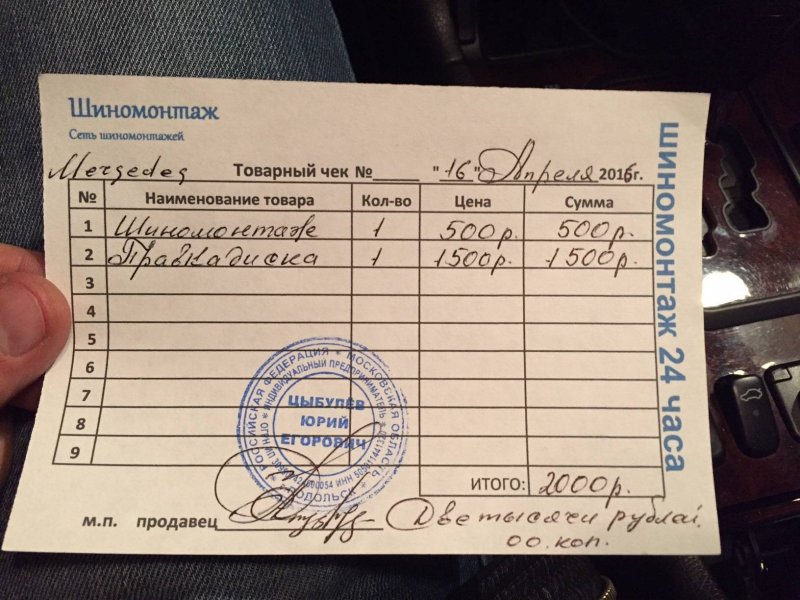 Шиномонтаж
Сеть шиномонтажей
Mergedeg Товарный чек № "16" Апреля 2016г.
№ Наименование товара Кол-во Цена Сумма
1 Шиномонтаже 1 500р. 500р.
2 Правка диска 1 1500р. 1500р.
3
4
5
6
7
8
9
ИТОГО: 2000р.
м.п. продавец Две тысячи рублай,
00. коп.
шиномонтаж 24 часа
РОССИЙСКАЯ ФЕДЕРАЦИЯ * МОСКОВСКАЯ ОБЛАСТЬ
ИНДИВИДУАЛЬНЫЙ ПРЕДПРИНИМАТЕЛЬ
ЦЫБУЛЕВ
ЮРИЙ
ЕГОРОВИЧ
ИНН
ПОДОЛЬСК